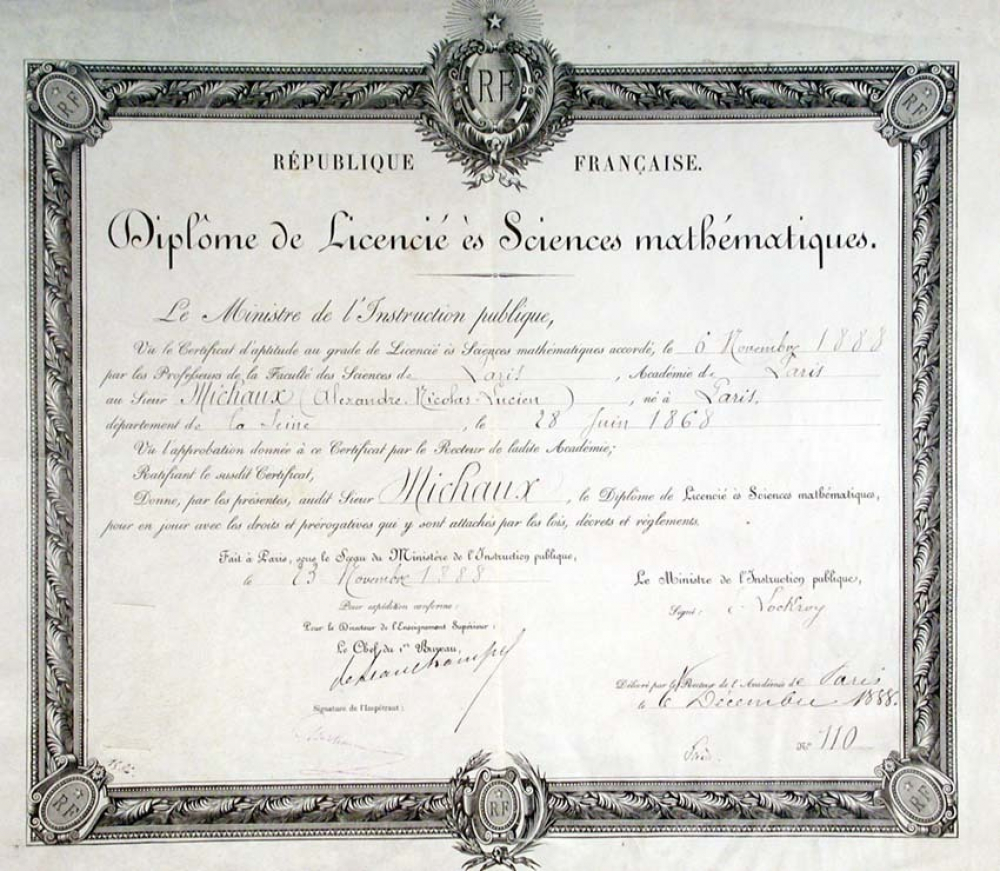 RF
RF
RF
RÉPUBLIQUE FRANÇAISE.
Diplôme de Licencié ès Sciences mathématiques.
Le Ministre de l'Instruction publique,
Vu le Certificat d'aptitude au grade de Licencié ès Sciences mathématiques accordé, le 6 Novembre 1888
par les Professeurs de la Faculté des Sciences de Paris, Académie de Paris
au Sieur Michaux (Alexandre Nicolas Lucien), né à Paris,
département de la Seine, le 28 Juin 1868
Vu l'approbation donnée à ce Certificat par le Recteur de ladite Académie;
Ratifiant le susdit Certificat,
Donne, par les présentes, audit Sieur Michaux, le Diplôme de Licencié ès Sciences mathématiques,
pour en jouir avec les droits et prérogatives qui y sont attachés par les lois, décrets et règlements.
Fait à Paris, sous le Sceau du Ministère de l'Instruction publique,
le 23 Novembre 1888
Le Ministre de l'Instruction publique,
Signé: E. Lockroy
Pour expédition conforme:
Pour le Directeur de l'Enseignement Supérieur:
Le Chef du 1er Bureau,
de Beauchamp
Délivré par le Recteur de l'Académie de Paris
le 6 Décembre 1888.
Signature de l'Impétrant:
No 110
RF
RF
RF